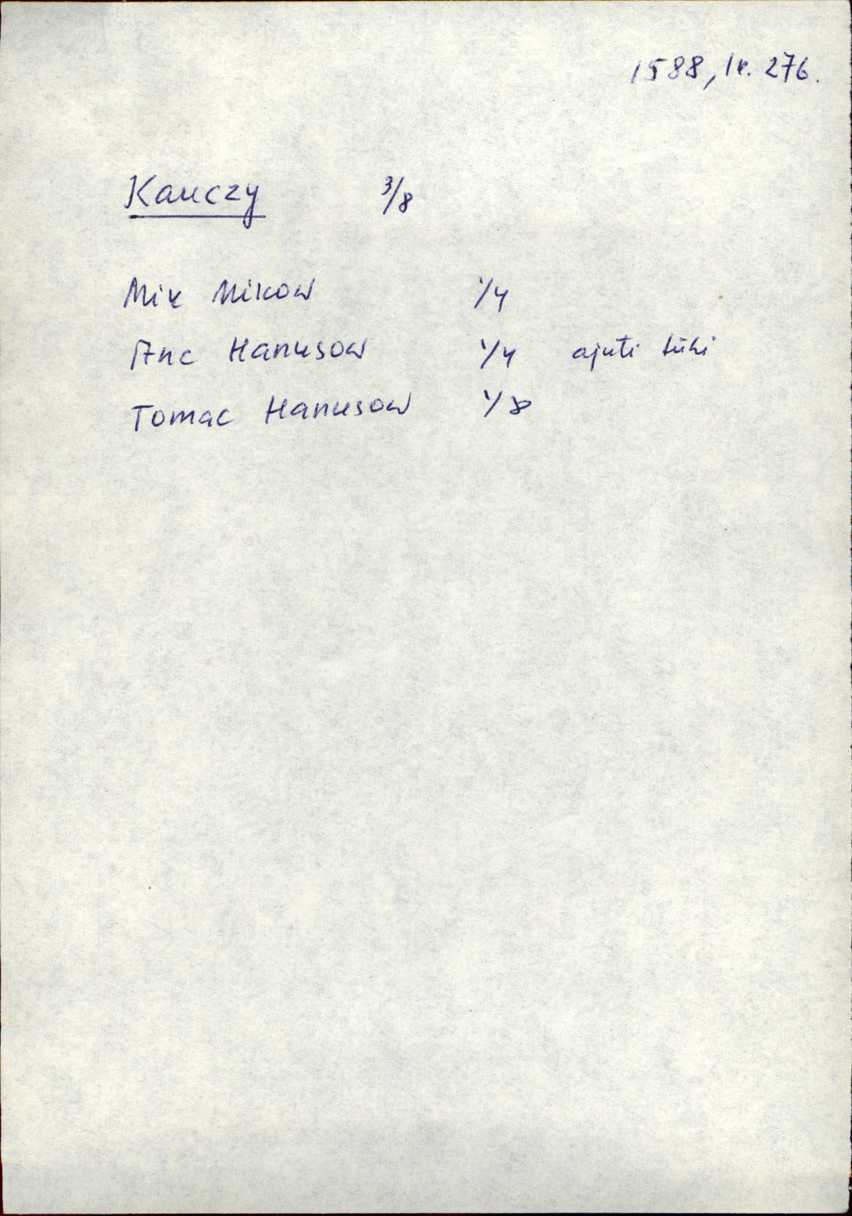 1588, lk. 276.
Kauczy 3/8
Mik Mikow 1/4
Anc Hanusow 1/4 ajuti tühi
Tomac Hanusow 1/8